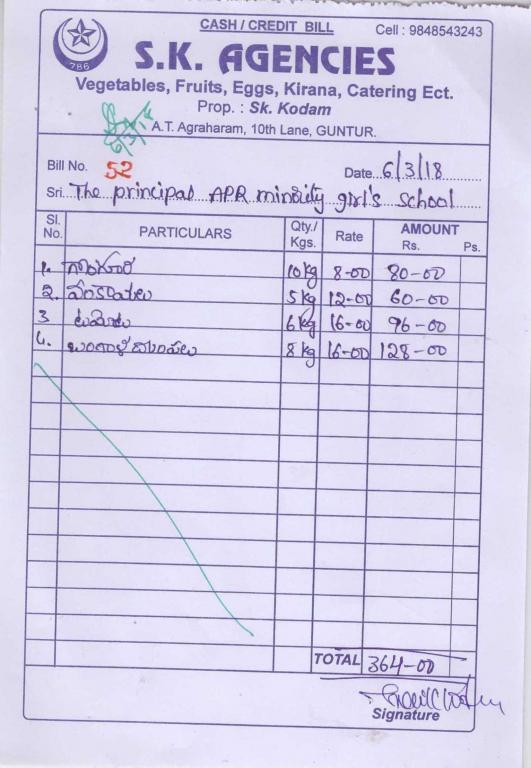 CASH / CREDIT BILL
Cell : 9848543243
786
S.K. AGENCIES
Vegetables, Fruits, Eggs, Kirana, Catering Ect.
Prop. : Sk. Kodam
6/3/18
A.T. Agraharam, 10th Lane, GUNTUR.
Bill No. 52 Date 6/3/18
Sri. The principal APR minority girl's school
Sl. No. PARTICULARS Qty./ Kgs. Rate AMOUNT Rs. Ps.
1. గోంగూర 10 kg 8-00 80-00
2. వంకాయలు 5 kg 12-00 60-00
3 టమోటు 6 kg 16-00 96-00
4. బంగాళదుంపలు 8 kg 16-00 128-00
TOTAL 364-00
Signature